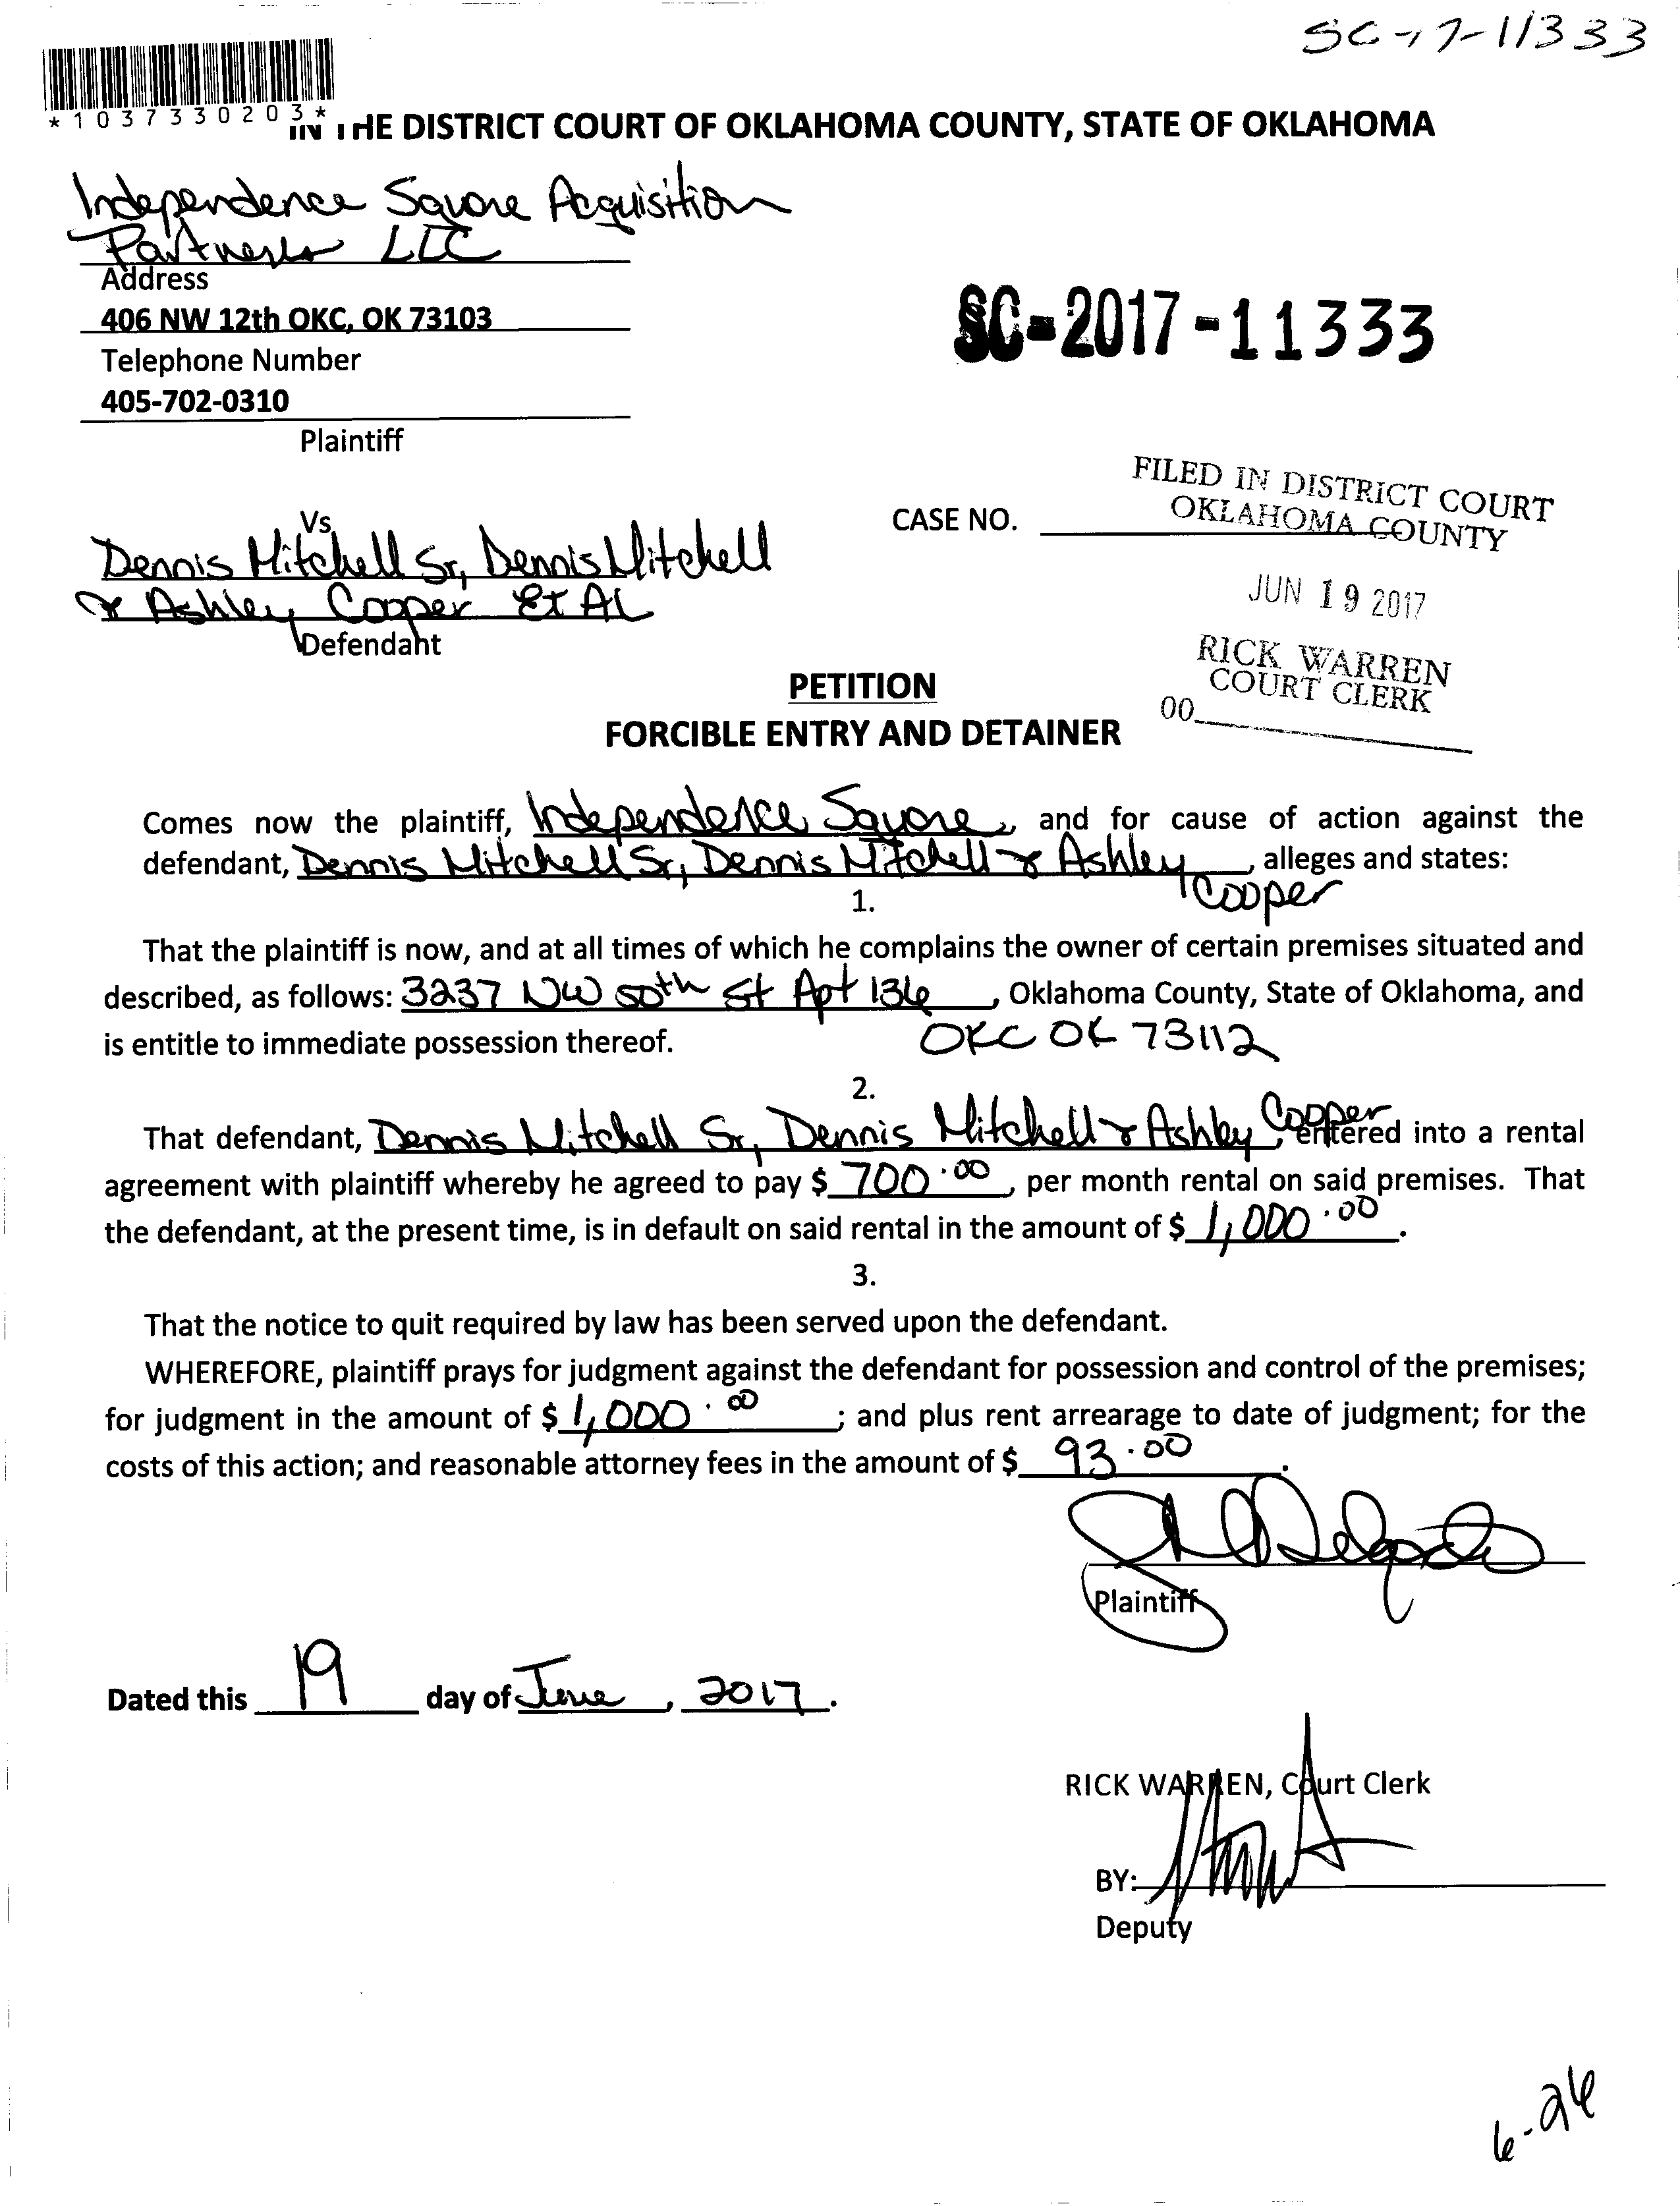 SC-17-11333
*1037330203*
IN THE DISTRICT COURT OF OKLAHOMA COUNTY, STATE OF OKLAHOMA
Independence Square Acquisition
Partners LLC
Address
406 NW 12th OKC, OK 73103
Telephone Number
405-702-0310
Plaintiff
SC-2017-11333
Vs
Dennis Mitchell Sr, Dennis Mitchell
& Ashley Cooper Et AL
Defendant
CASE NO.
FILED IN DISTRICT COURT
OKLAHOMA COUNTY
JUN 19 2017
RICK WARREN
COURT CLERK
00
PETITION
FORCIBLE ENTRY AND DETAINER
Comes now the plaintiff, Independence Square, and for cause of action against the
defendant, Dennis Mitchell Sr, Dennis Mitchell & Ashley Cooper, alleges and states:
1.
That the plaintiff is now, and at all times of which he complains the owner of certain premises situated and
described, as follows: 3237 NW 50th St Apt 136, Oklahoma County, State of Oklahoma, and
is entitle to immediate possession thereof. OKC OK 73112
2.
That defendant, Dennis Mitchell Sr, Dennis Mitchell & Ashley Cooper, entered into a rental
agreement with plaintiff whereby he agreed to pay $ 700.00, per month rental on said premises. That
the defendant, at the present time, is in default on said rental in the amount of $ 1,000.00.
3.
That the notice to quit required by law has been served upon the defendant.
WHEREFORE, plaintiff prays for judgment against the defendant for possession and control of the premises;
for judgment in the amount of $ 1,000.00; and plus rent arrearage to date of judgment; for the
costs of this action; and reasonable attorney fees in the amount of $ 93.00.
Plaintiff
Dated this 19 day of June, 2017.
RICK WARREN, Court Clerk
BY:
Deputy
6-26